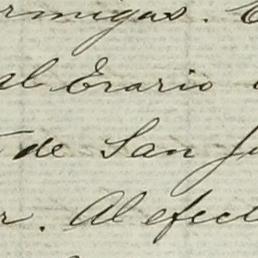 ormigas.
al Erario
de San Ju
r. Al efect